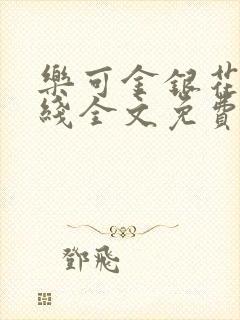 樂可金銀花
綫全文免費
鄧飛